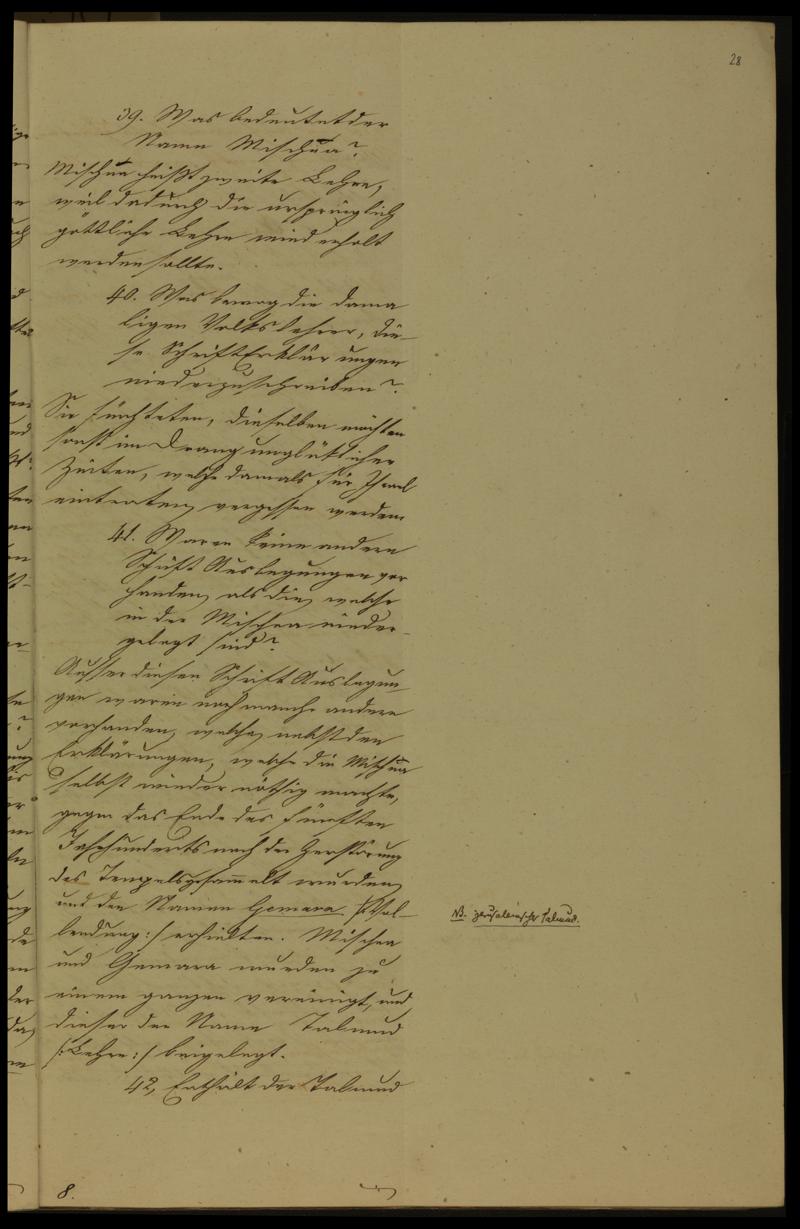 28
39. Was bedeutet der
Name Mischna?
Mischna heißt zweite Lehre,
weil dadurch die ursprünglich
göttliche Lehre wiederholt
werden sollte.
40. Was bewog die dama
ligen Volkslehrer, die-
se Schrifterklärungen
niederzuschreiben?
Sie fürchteten, dieselben möchten
sonst im Drang unglücklicher
Zeiten, welche damals für Israel
eintraten, vergessen werden.
41. Waren keine andern
Schrift Auslegungen vor
handen, als die, welche
in der Mischna nieder-
gelegt sind?
Ausser diesen Schrift Auslegun
gen waren noch manche andere
vorhanden, welche, nebst den
Erklärungen, welche die Mischna
selbst wieder nöthig machte,
gegen das Ende des fünften
Jahrhunderts nach der Zerstörung
des Tempels gesammelt wurden,
und den Namen Gemara /:Vol-
lendung:/ erhielten. Mischna
und Gemara wurden zu
einem ganzen vereinigt, und
dieser der Name Talmud
/:Lehre:/ beigelegt.
42, Enthält der Talmud
NB. jerusalemischer Talmud.
8.